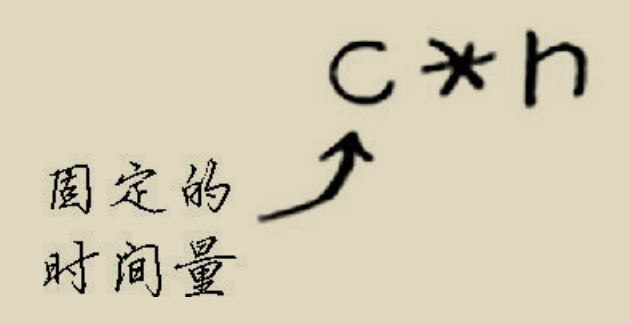 c*n
固定的
时间量